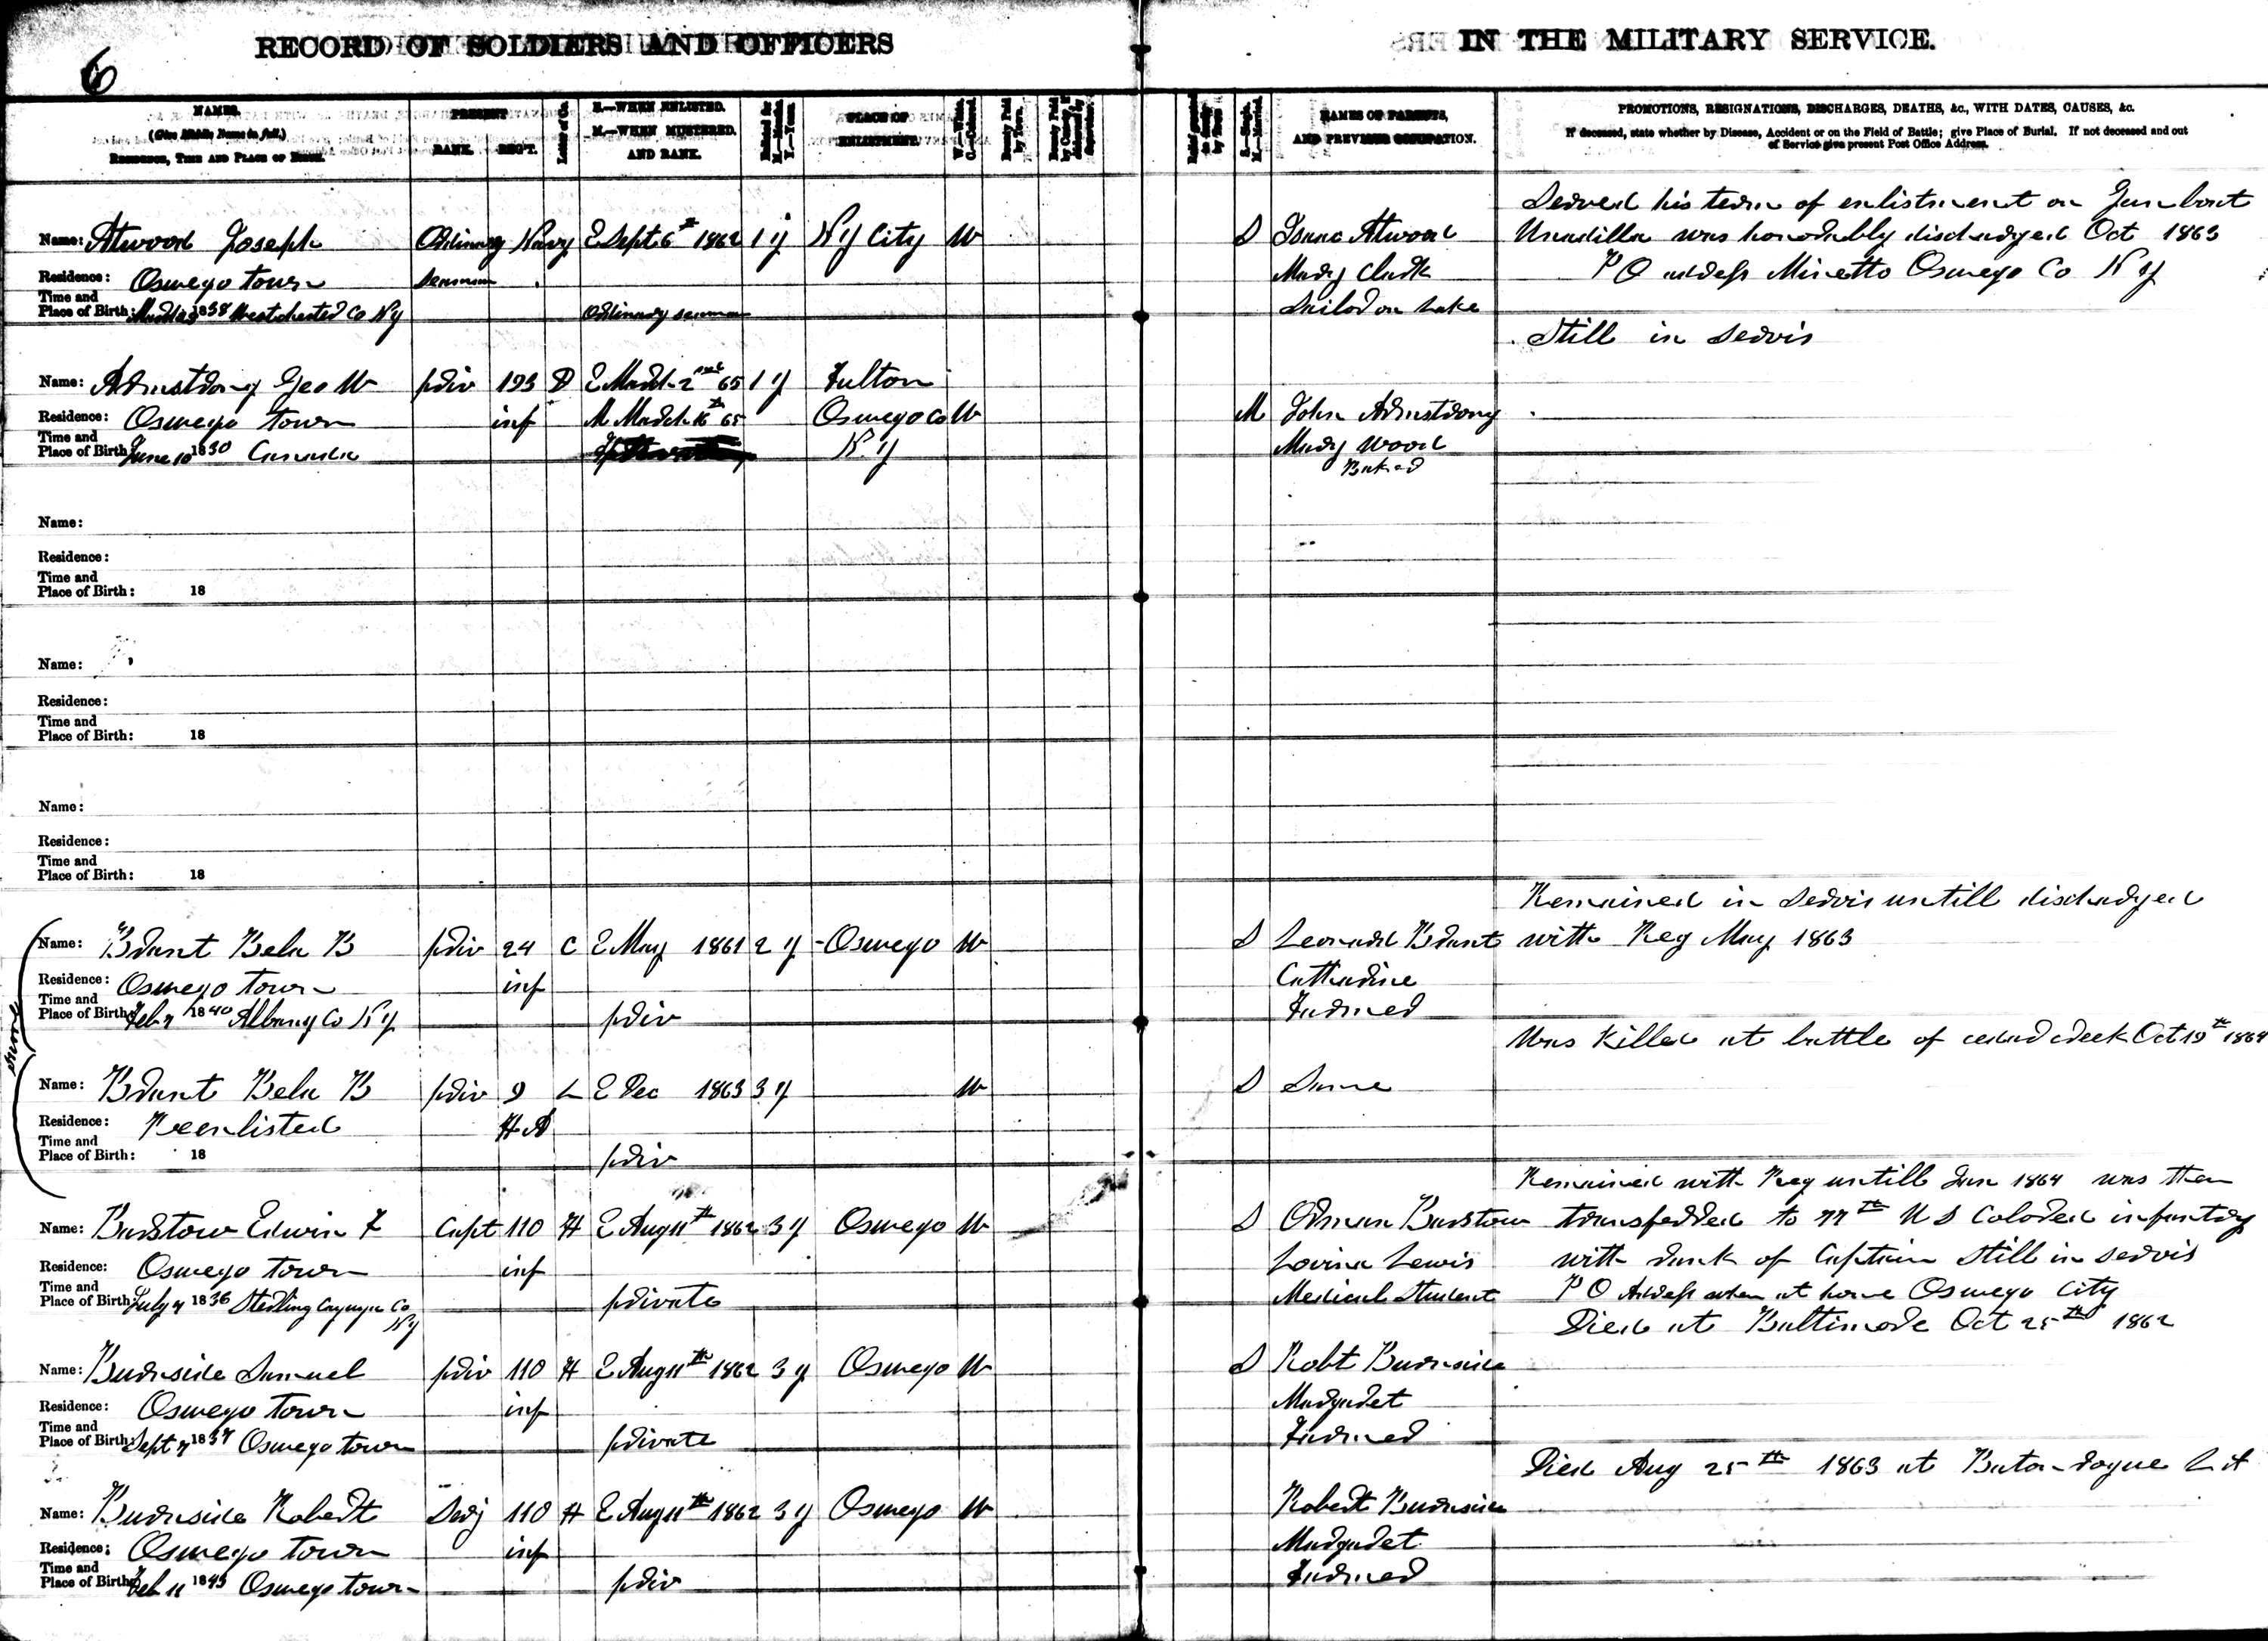 6
RECORD OF SOLDIERS AND OFFICERS IN THE MILITARY SERVICE.
NAMES.
(Give Middle Name in full.)
RESIDENCE, TIME AND PLACE OF BIRTH.
PRESENT
RANK. REG'T.
Letter of Co.
E.—WHEN ENLISTED.
M.—WHEN MUSTERED.
AND RANK.
Enlisted for
M.—Months.
Y.—Years.
PLACE OF
ENLISTMENT.
W.—White.
C.—Colored.
Bounty Paid
by Town.
Bounty Paid
by County, if
Supervisors.
S.—Single.
M.—Married.
NAMES OF PARENTS,
AND PREVIOUS OCCUPATION.
PROMOTIONS, RESIGNATIONS, DISCHARGES, DEATHS, &c., WITH DATES, CAUSES, &c.
If deceased, state whether by Disease, Accident or on the Field of Battle; give Place of Burial. If not deceased and out
of Service give present Post Office Address.
Served his term of enlistment on Gunboat
Name: Atwood Joseph Ordinary Navy E Sept 6th 1862 1 y N Y City W S Isaac Atwood Unadilla was honorably discharged Oct 1863
Residence: Oswego town seaman Mary Clark P O address Minetto Oswego Co N Y
Time and
Place of Birth: 1838 Westchester Co N Y Ordinary seaman Sailor on Lake
Still in servis
Name: Armstrong Geo W priv 193 D E March 2nd 65 1 y Fulton
Residence: Oswego town inf M March 16th 65 Oswego Co W M John Armstrong
Time and
Place of Birth: June 10 1830 Canada N Y Mary Wood
Name:
Residence:
Time and
Place of Birth: 18
Name:
Residence:
Time and
Place of Birth: 18
Name:
Residence:
Time and
Place of Birth: 18
Remained in servis untill discharged
Name: Brant Bela B priv 24 C E May 1861 2 y Oswego W S Leonard Brant with Reg May 1863
Residence: Oswego town inf Catharine
Time and
Place of Birth: Feb 7 1840 Albany Co N Y priv Farmer
Was Killed at battle of cedar creek Oct 19th 1864
Name: Brant Bela B priv 9 L E Dec 1863 3 y W S Same
Residence: Reenlisted H A
Time and
Place of Birth: 18 priv
Remained with Reg untill Jan 1864 was then
Name: Barstow Edwin F Capt 110 H E Aug 11th 1862 3 y Oswego W S Orman Barstow transferred to 77th U S Colored infantry
Residence: Oswego town inf Lovina Lewis with rank of Captain still in servis
Time and
Place of Birth: July 7 1836 Sterling Cayuga Co N Y private Medical Student P O Address when at home Oswego City
Died at Baltimore Oct 25th 1862
Name: Burnside Samuel priv 110 H E Aug 11th 1862 3 y Oswego W S Robt Burnside
Residence: Oswego town inf Margaret
Time and
Place of Birth: Sept 7 1837 Oswego town private Farmer
Died Aug 25th 1863 at Baton rogue
Name: Burnside Robert Serj 110 H E Aug 11th 1862 3 y Oswego W Robert Burnside
Residence: Oswego town inf Margaret
Time and
Place of Birth: Feb 11 1843 Oswego town priv Farmer